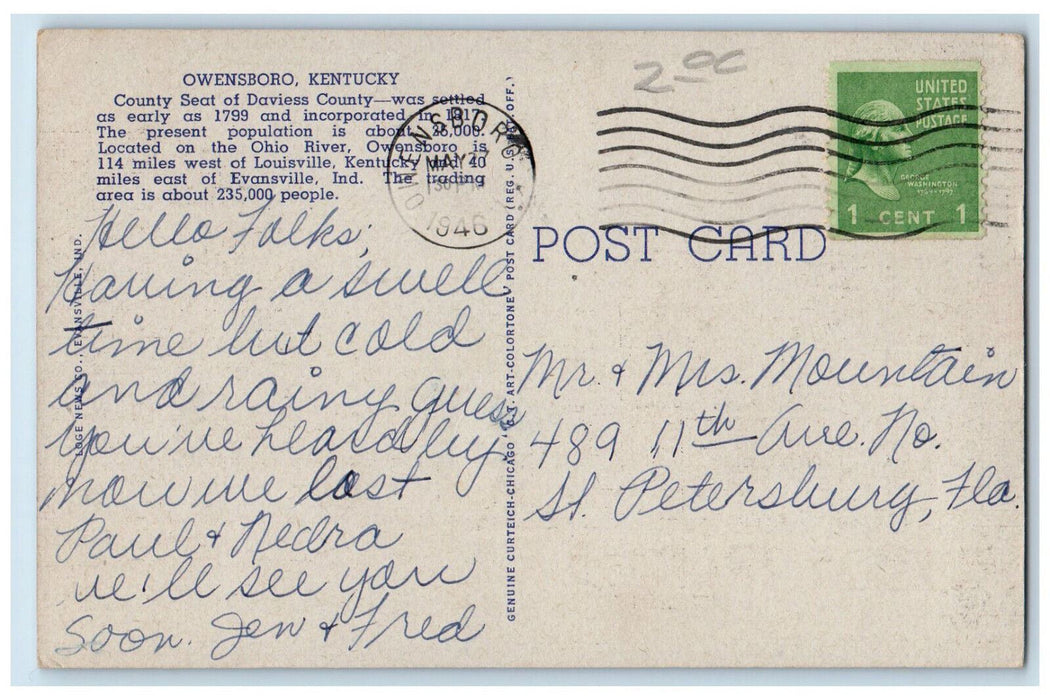 OWENSBORO, KENTUCKY
County Seat of Daviess County—was settled
as early as 1799 and incorporated in 1817.
The present population is about 26,000.
Located on the Ohio River, Owensboro is
114 miles west of Louisville, Kentucky and 40
miles east of Evansville, Ind. The trading
area is about 235,000 people.
Hello Folks;
Having a swell
time but cold
and rainy guess
you've heard by
now we lost
Paul & Nedra
we'll see you
soon. Jen & Fred
NEWS CO., EVANSVILLE, IND.
GENUINE CURTEICH-CHICAGO "C.T. ART-COLORTONE" POST CARD (REG. U.S. PAT. OFF.)
OWENSBORO
MAY
1946
2 00
UNITED
STATES
POSTAGE
GEORGE
WASHINGTON
1 CENT 1
POST CARD
Mr. & Mrs. Mountain
489 11th Ave. No.
St. Petersburg, Fla.